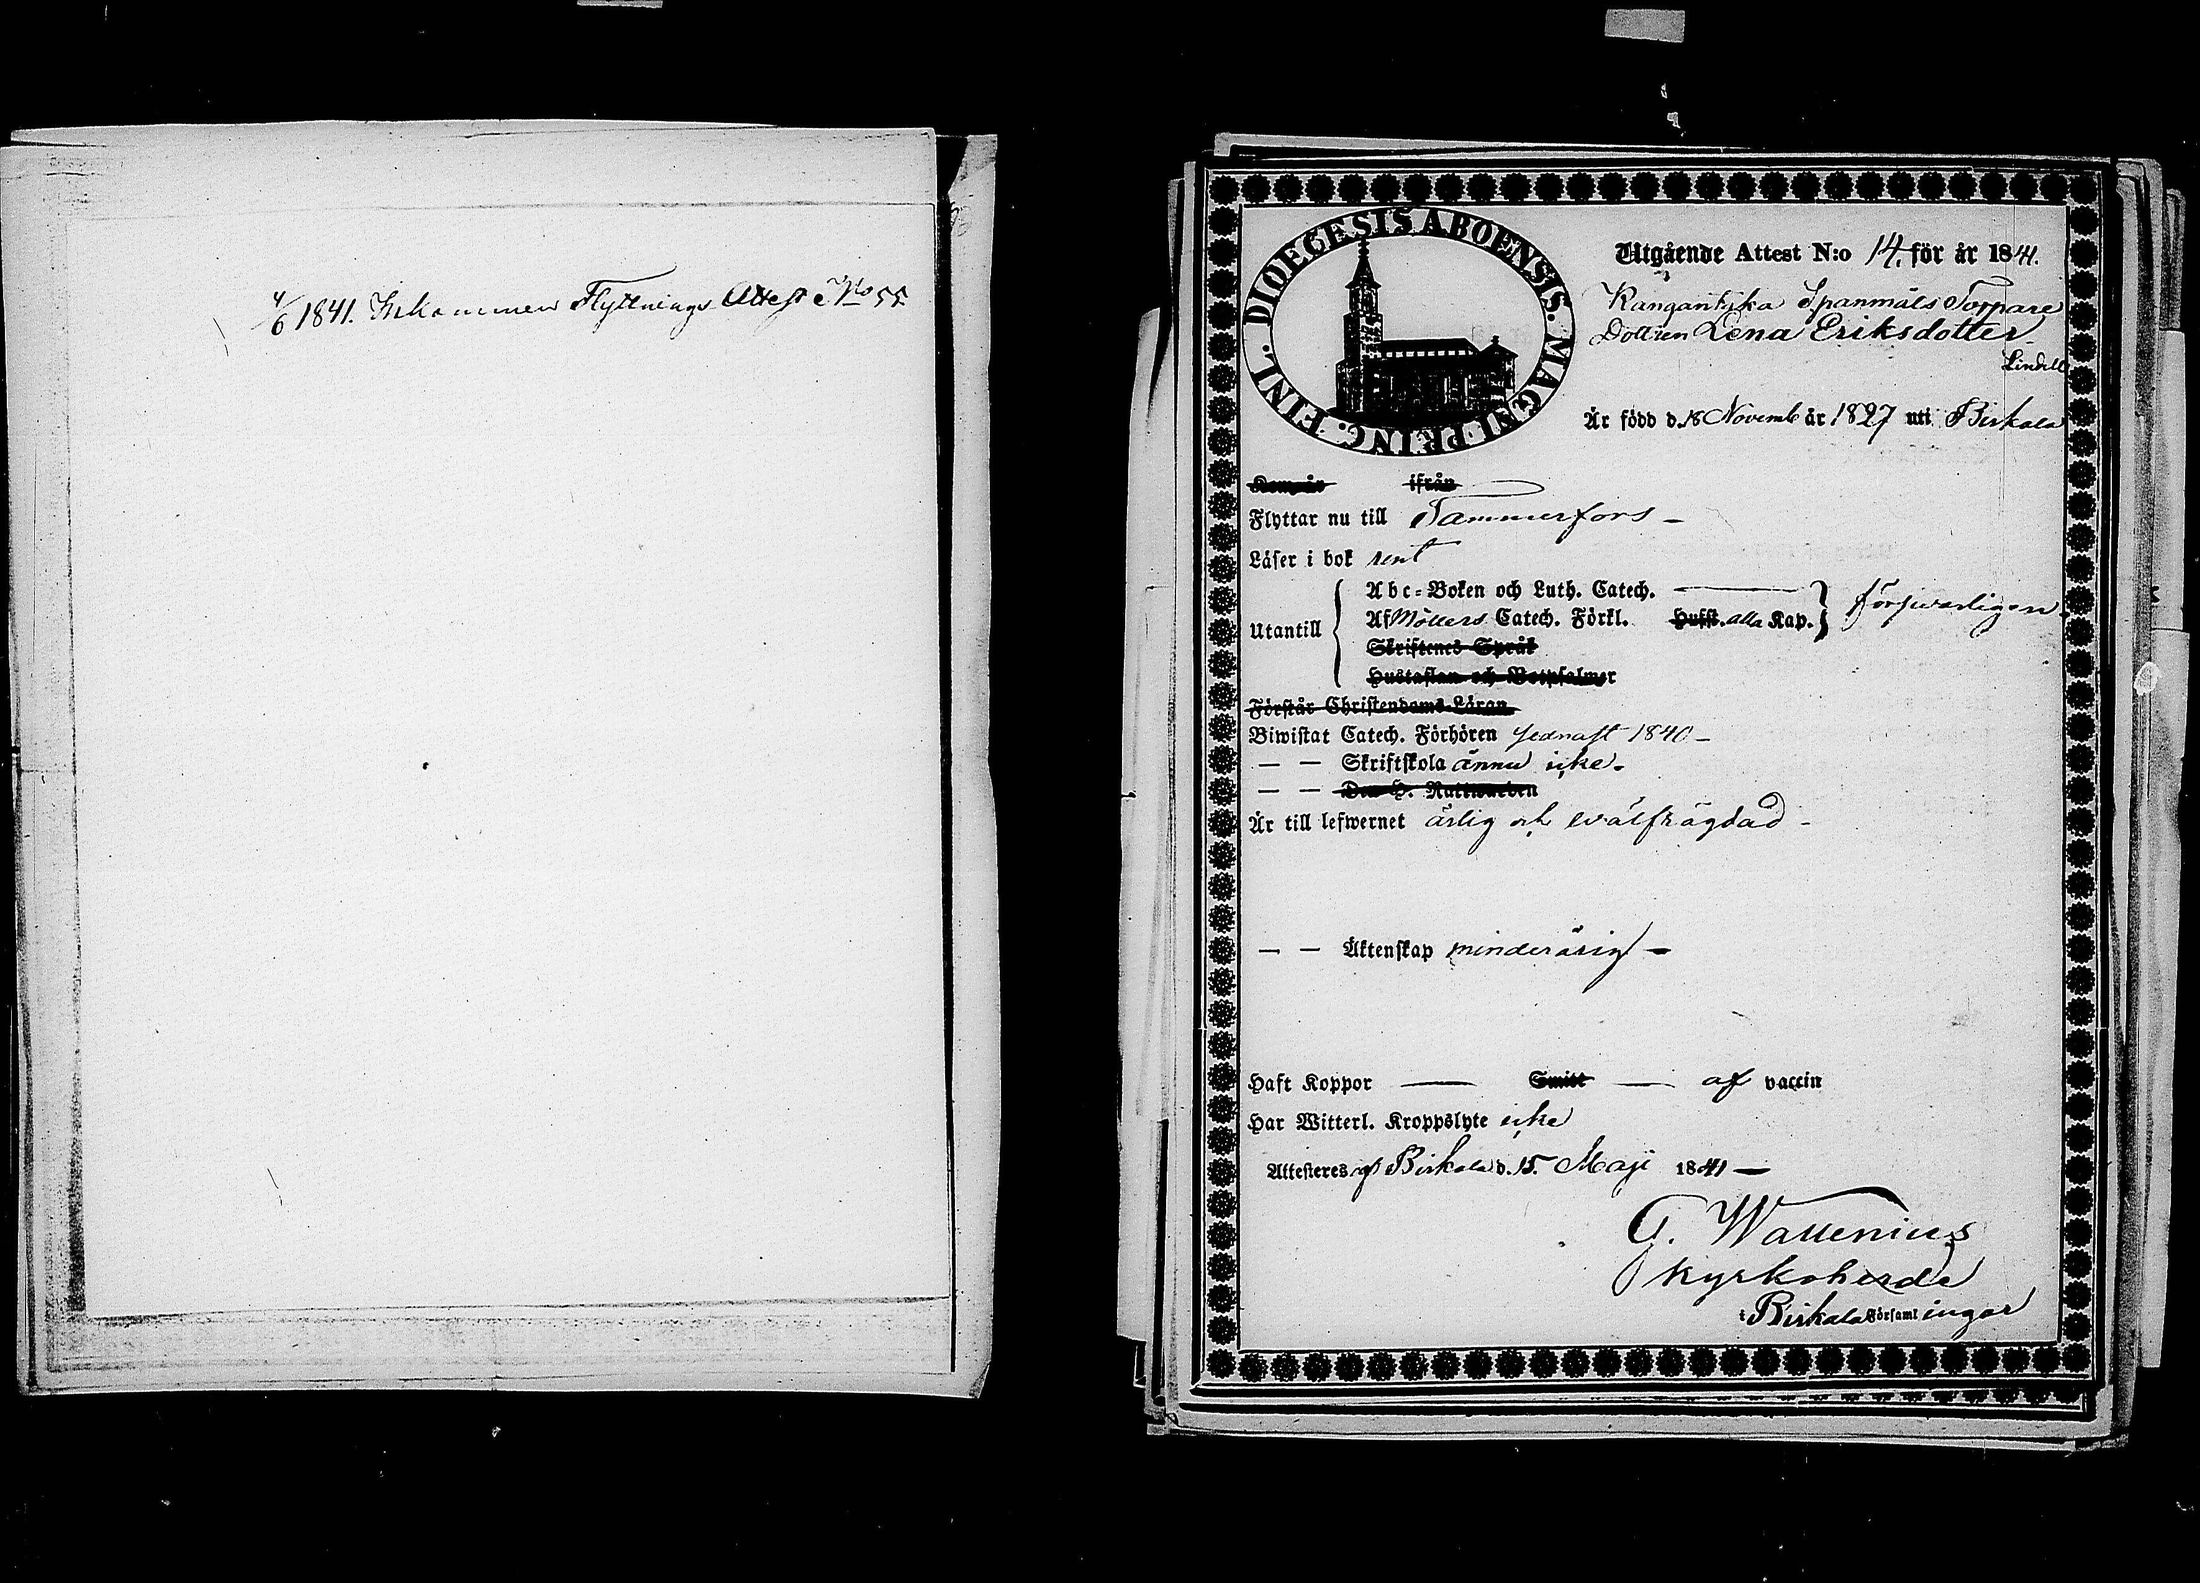 4/6 1841. Inkommen Flyttnings Attest No 55.
DIOECESIS ABOENSIS. MAGNI PRINC. FINL.
Utgående Attest N:o 14. för år 1841.
Kangantaka Spanmåls Torpare
Dottren Lena Eriksdotter
Lindell
Är född d. 18 Novemb år 1827 uti Birkala
Kom år ifrån
Flyttar nu till Tammerfors –
Läser i bok rent
Abc-Boken och Luth. Catech. —
Utantill Af Möllers Catech. Förkl. Hufst. alla Kap. försvarligen.
Skriftenes Språk
Hustaflan och Botpsalmer
Förstår Christendoms-Läran
Biwistat Catech. Förhören sednast 1840 –
— — Skriftskola ännu icke.
— — Den H. Nattwarden
Är till lefwernet ärlig och wälfrägdad –
— — Äktenskap minderårig –
Haft Koppor — Smitt — af vaccin
Har Witterl. Kroppslyte icke
Attesteras af Birkala d. 15. Maji 1841 —
G. Wallenius
Kyrkoherde
i Birkala Församlingar